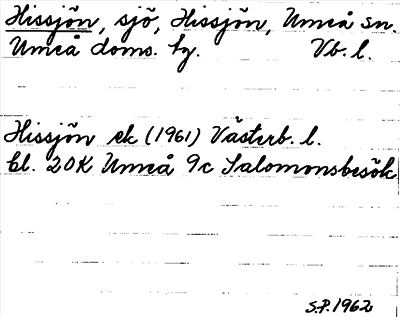 Hissjön, sjö, Hissjön, Umeå sn.
Umeå doms. hg. Vb. l.
Hissjön ek (1961) Västerb. l.
bl. 20K Umeå 9c Salomonsbesök
S.P. 1962